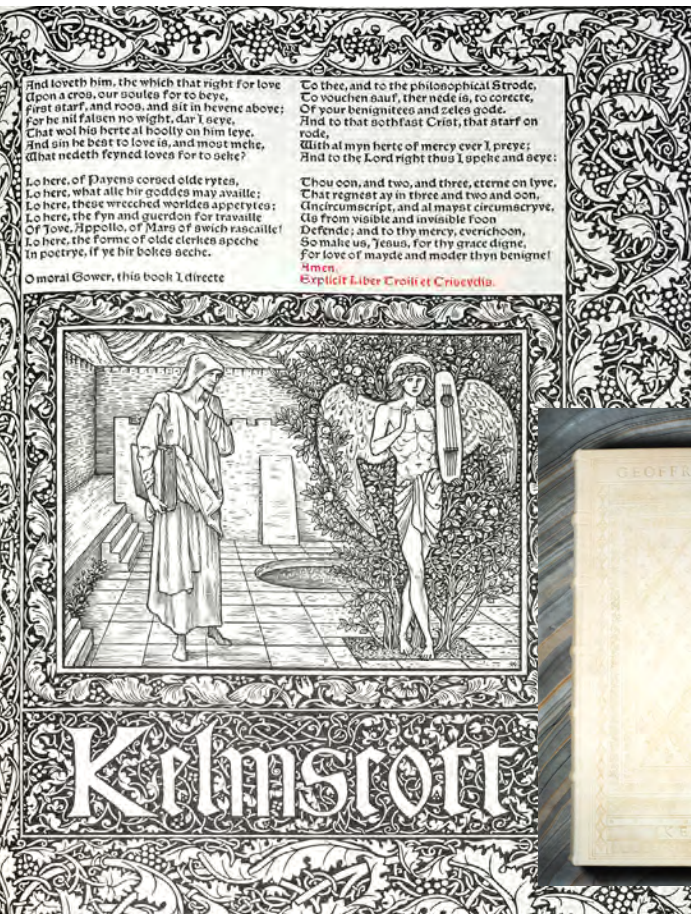 And loveth him, the which that right for love
Upon a cros, our soules for to beye,
First starf, and roos, and sit in hevene above;
For he nil falsen no wight, dar I seye,
That wol his herte al hoolly on him leye.
And sin he best to love is, and most meke,
What nedeth feyned loves for to seke?
Lo here, of Payens corsed olde rytes,
Lo here, what alle hir goddes may availle;
Lo here, these wrecched worldes appetytes;
Lo here, the fyn and guerdon for travaille
Of Jove, Appollo, of Mars of swich rascaille!
Lo here, the forme of olde clerkes speche
In poetrye, if ye hir bokes seche.
O moral Gower, this book I directe
To thee, and to the philosophical Strode,
To vouchen sauf, ther nede is, to corecte,
Of your benignitees and zeles gode.
And to that sothfast Crist, that starf on
rode,
With al myn herte of mercy ever I preye;
And to the Lord right thus I speke and seye:
Thou oon, and two, and three, eterne on lyve,
That regnest ay in three and two and oon,
Uncircumscript, and al mayst circumscryve,
Us from visible and invisible foon
Defende; and to thy mercy, everichoon,
So make us, Jesus, for thy grace digne,
For love of mayde and moder thyn benigne!
Amen.
Explicit Liber Troili et Criseydis.
Kelmscott
GEOFFR
KE